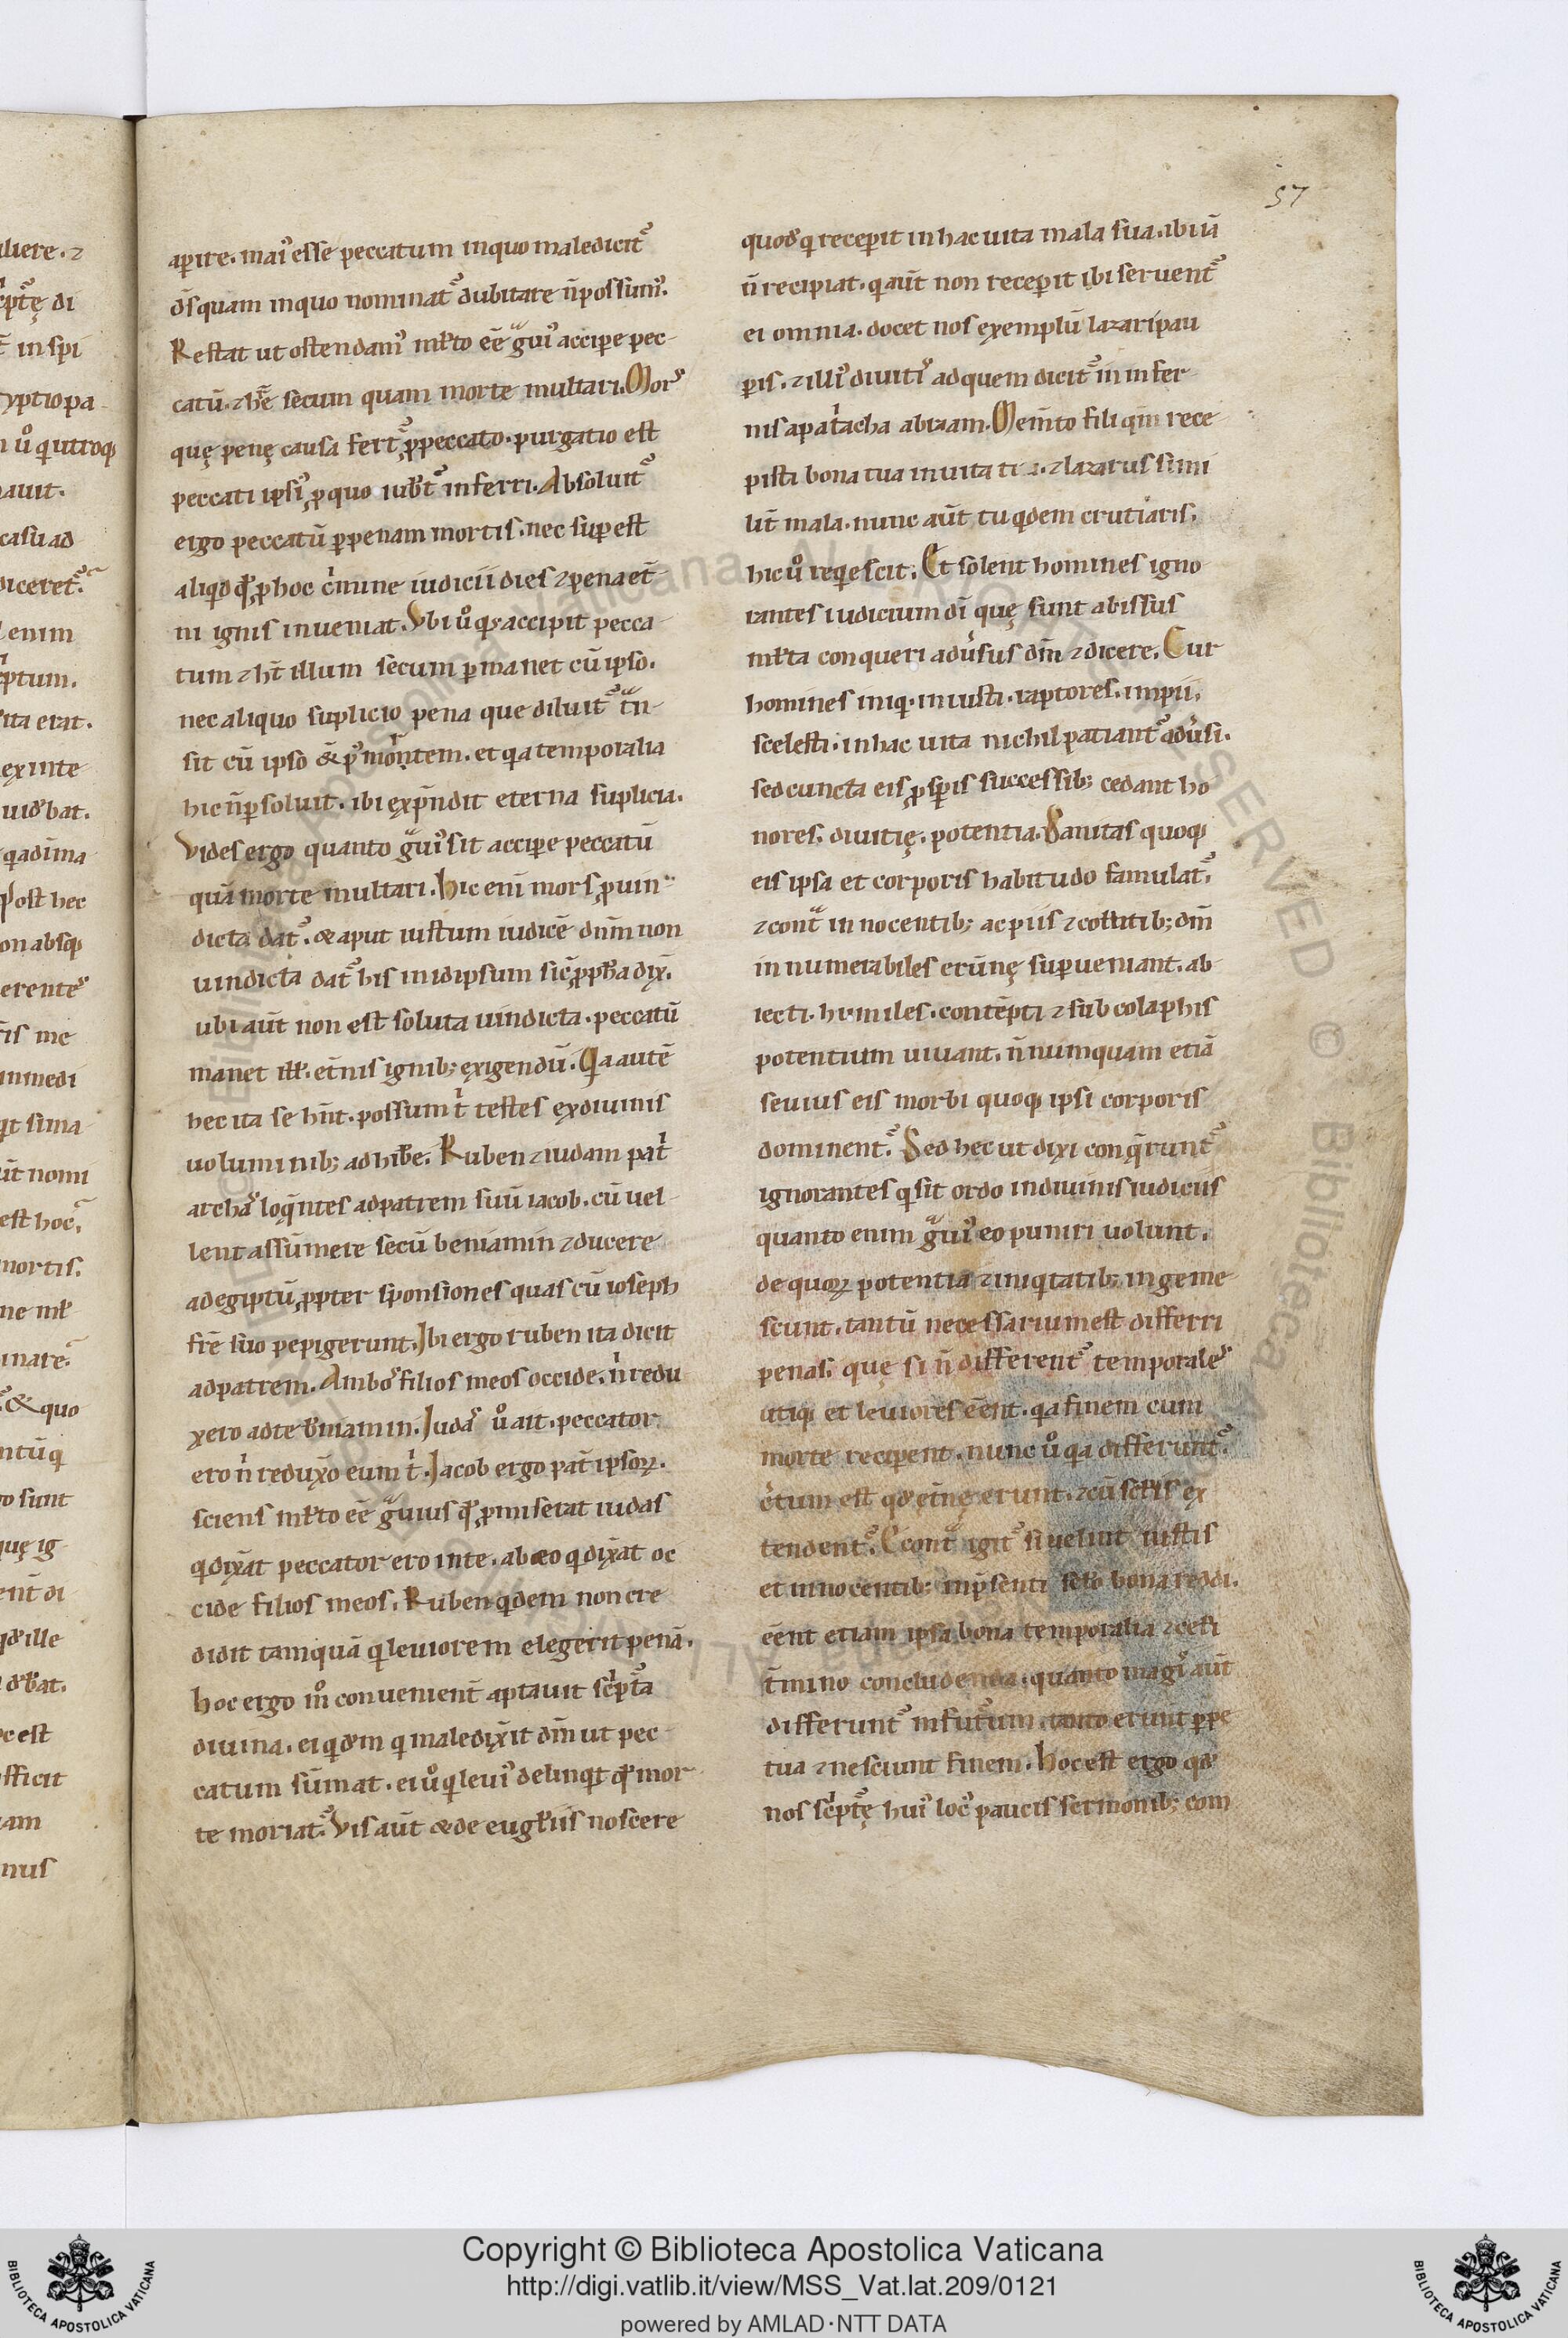 liere. ⁊
inspi
typtiopa
auit.
casuad
enim
ptum.
ita erat.
exinte
uidebat.
post hec
onabsq;
is me
inmedi
sima
nomi
est hoc.
mortis.
&quo
sunt
quę ig
ille
est
fficit
am
nus
57
apire. mai᾽ esse peccatum inquo maledicit᾽
ds̄ quam inquo nominat᾽ dubitare n̄ possum᾽.
Restat ut ostendam᾽ mł̄to eē ḡui᾽ accipe pec
catū. ⁊ hr̄e secum quam morte multari. Mors
quę penę causa fert᾽ ꝓpeccato. purgatio est
peccati ipsi᾽ ꝓquo iubet᾽ inferri. Absoluit᾽
ergo peccatū ꝑpenam mortis. nec supest
aliqd qđ ꝓhoc crimine iudicii dies ⁊ pena et̄
ni ignis inueniat. Vbi ůo qs accipit pecca
tum ⁊ ht̄ illum secum ꝑmanet cū ipso.
nec aliquo suplicio pena que diluit᾽ t̃n
sit cū ipso & p᾽ mortem. et qa temporalia
hic n̄ ꝑsoluit. ibi expendit eterna suplicia.
Vides ergo quanto ḡui᾽ sit accipe peccatū
quā morte multari. Hic eni mors ꝓuin
dicta dat᾽. & aput iustum iudicē dnm̄ non
uindicta dat᾽ bis inidipsum sic ꝓpha dix̄.
ubi aūt non est soluta uindicta. peccatū
manet ill̄. et̄nis ignib; exigendū. Qa autē
hec ita se hn̄t. possum t testes exdiuinis
uoluminib; adhibere. Ruben ⁊ iudam patⁱ
archas loqn̄tes adpatrem suū iacob. cū uel
lent assumere secū beniamin ⁊ ducere
adegiptū ꝓpter sponsiones quas cū ioseph
frē suo pepigerunt. Ibi ergo ruben ita dicit
adpatrem. Ambos filios meos occide. nⁱ redu
xero adte beniamin. Judas ůo ait. peccator
ero nⁱ reduxo eum tⁱ. Jacob ergo pat̄ ipsoꝝ.
sciens mł̄to eē ḡuius qđ ꝓmiserat iudas
qđixat peccator ero inte. abeo qđixat oc
cide filios meos. Ruben qdem non cre
didit tamquā qleuiorem elegerit penā.
hoc ergo mo conuenient̄ aptauit scⁱpt᾽a
diuina. ei qdem q maledixit dm̄ ut pec
catum sūmat. ei ůo qleui᾽ delinqt qđ mor
te moriat᾽. Vis aūt & de eugłiis noscere
quodq receꝑit inhac uita mala sua. ibi iā
n̄ recipiat. q aūt non receꝑit ibi seruent᾽
ei omnia. docet nos exemplū lazari pau
ꝑis. ⁊ illi᾽ diuitis adquem dicit᾽ in infer
nis apatⁱarcha abraam. Mem̄to fili qm̄ rece
pisti bona tua inuita tua. ⁊ lazarus simi
lit̄ mala. nunc aūt tu qdem crutiaris.
hic ůo reqescit. Et solent homines igno
rantes iudicium dī quę sunt abissus
mł̄ta conqueri aduⁱsus dm̄ ⁊ dicere. Cur
homines iniqi. iniusti. raptores. impii.
scelesti. inhac uita nichil patiant᾽ aduⁱsi.
sed cuncta eis ꝓsꝑis successib; cedant ho
nores. diuitię. potentia. Sanitas quoq;
eis ipsa et corporis habitudo famulat᾽.
⁊ cont̃ innocentib; ac piis ⁊ coltⁱtib; dm̄
innumerabiles erūnę suꝑueniant. ab
iecti. humiles. contēpti ⁊ sub colaphis
potentum uiuant. n̄ numquam etiā
seuius eis morbi quoq; ipsi corporis
dominent᾽. Sed hec ut dixi conqrunt᾽
ignorantes q sit ordo indiuinis iudiciis
quanto enim ḡui᾽ eo puniri uolunt.
de quoꝝ potentia ⁊ iniqtatib; ingeme
scunt. tantū necessarium est differri
penas. que si n̄ different᾽ temporales
utiq; et leuiores eēnt. qa finem cum
morte reciꝑent. nunc ůo qa differunt᾽
cⁱtum est qđ et̄nę erunt. ⁊ cū scłis ex
tendent᾽. Econt̃ igit᾽ si uelint iustis
et innocentib; inpⁱsenti scło bona reddi.
eēnt etiam ipsa bona temporalia ⁊ celi
t̄mino concludenda. quanto magi᾽ aūt
differunt᾽ infut᾽um. tanto erunt ꝑpe
tua ⁊ nesciunt finem. hoc est ergo qđ
nos scⁱpt᾽ę hui᾽ loci paucis sermonib; com
Copyright © Biblioteca Apostolica Vaticana
http://digi.vatlib.it/view/MSS_Vat.lat.209/0121
powered by AMLAD·NTT DATA
BIBLIOTECA APOSTOLICA VATICANA
BIBLIOTECA APOSTOLICA VATICANA